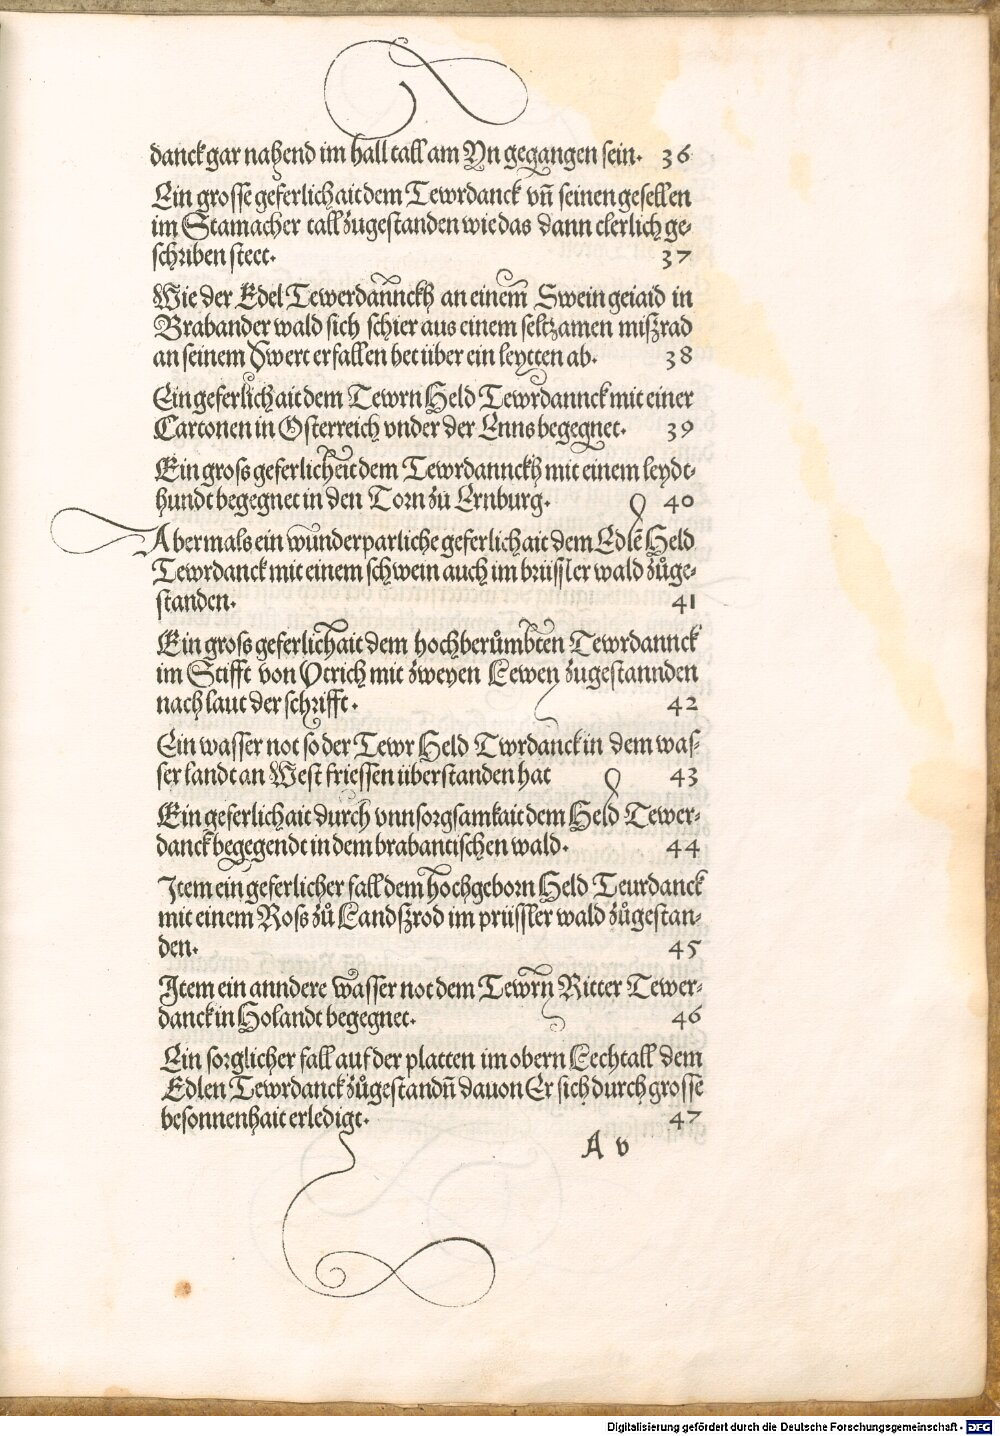 danck gar nahend im hall tall am Yn gegangen sein. 36
Ein grosse geferlichait dem Tewrdanck vñ seinen gesellen
im Stamacher tall zugestanden wie das dann clerlich ge-
schriben steet. 37
Wie der Edel Tewerdannckh an einem Swein geiaid in
Brabander wald sich schier aus einem seltzamen miszrad
an seinem Swert erfallen het über ein leytten ab. 38
Ein geferlichait dem Tewrn Held Tewrdannck mit einer
Cartonen in Osterreich vnder der Enns begegnet. 39
Ein gross geferlicheit dem Tewrdannckh mit einem leydt-
hundt begegnet in den Torn zů Ernburg. 40
Abermals ein wunderparliche geferlichait dem Edlē Held
Tewrdanck mit einem schwein auch im brüssler wald zůge-
standen. 41
Ein gross geferlichait dem hochberůmbten Tewrdannck
im Stifft von Vtrich mit zweyen Lewen zugestannden
nach laut der schrifft. 42
Ein wasser not so der Tewr Held Twrdanck in dem was-
ser landt an West friessen überstanden hat 43
Ein geferlichait durch vnnsorgsamkait dem Held Tewer-
danck begegendt in dem brabantischen wald. 44
Item ein geferlicher fall dem hochgeborn Held Teurdanck
mit einem Ross zů Landszrod im prüssler wald zůgestan-
den. 45
Item ein anndere wasser not dem Tewrn Ritter Tewer-
danck in Holandt begegnet. 46
Ein sorglicher fall auf der platten im obern Lechtall dem
Edlen Tewrdanck zůgestandñ dauon Er sich durch grosse
besonnenhait erledigt. 47
A v
Digitalisierung gefördert durch die Deutsche Forschungsgemeinschaft - DFG